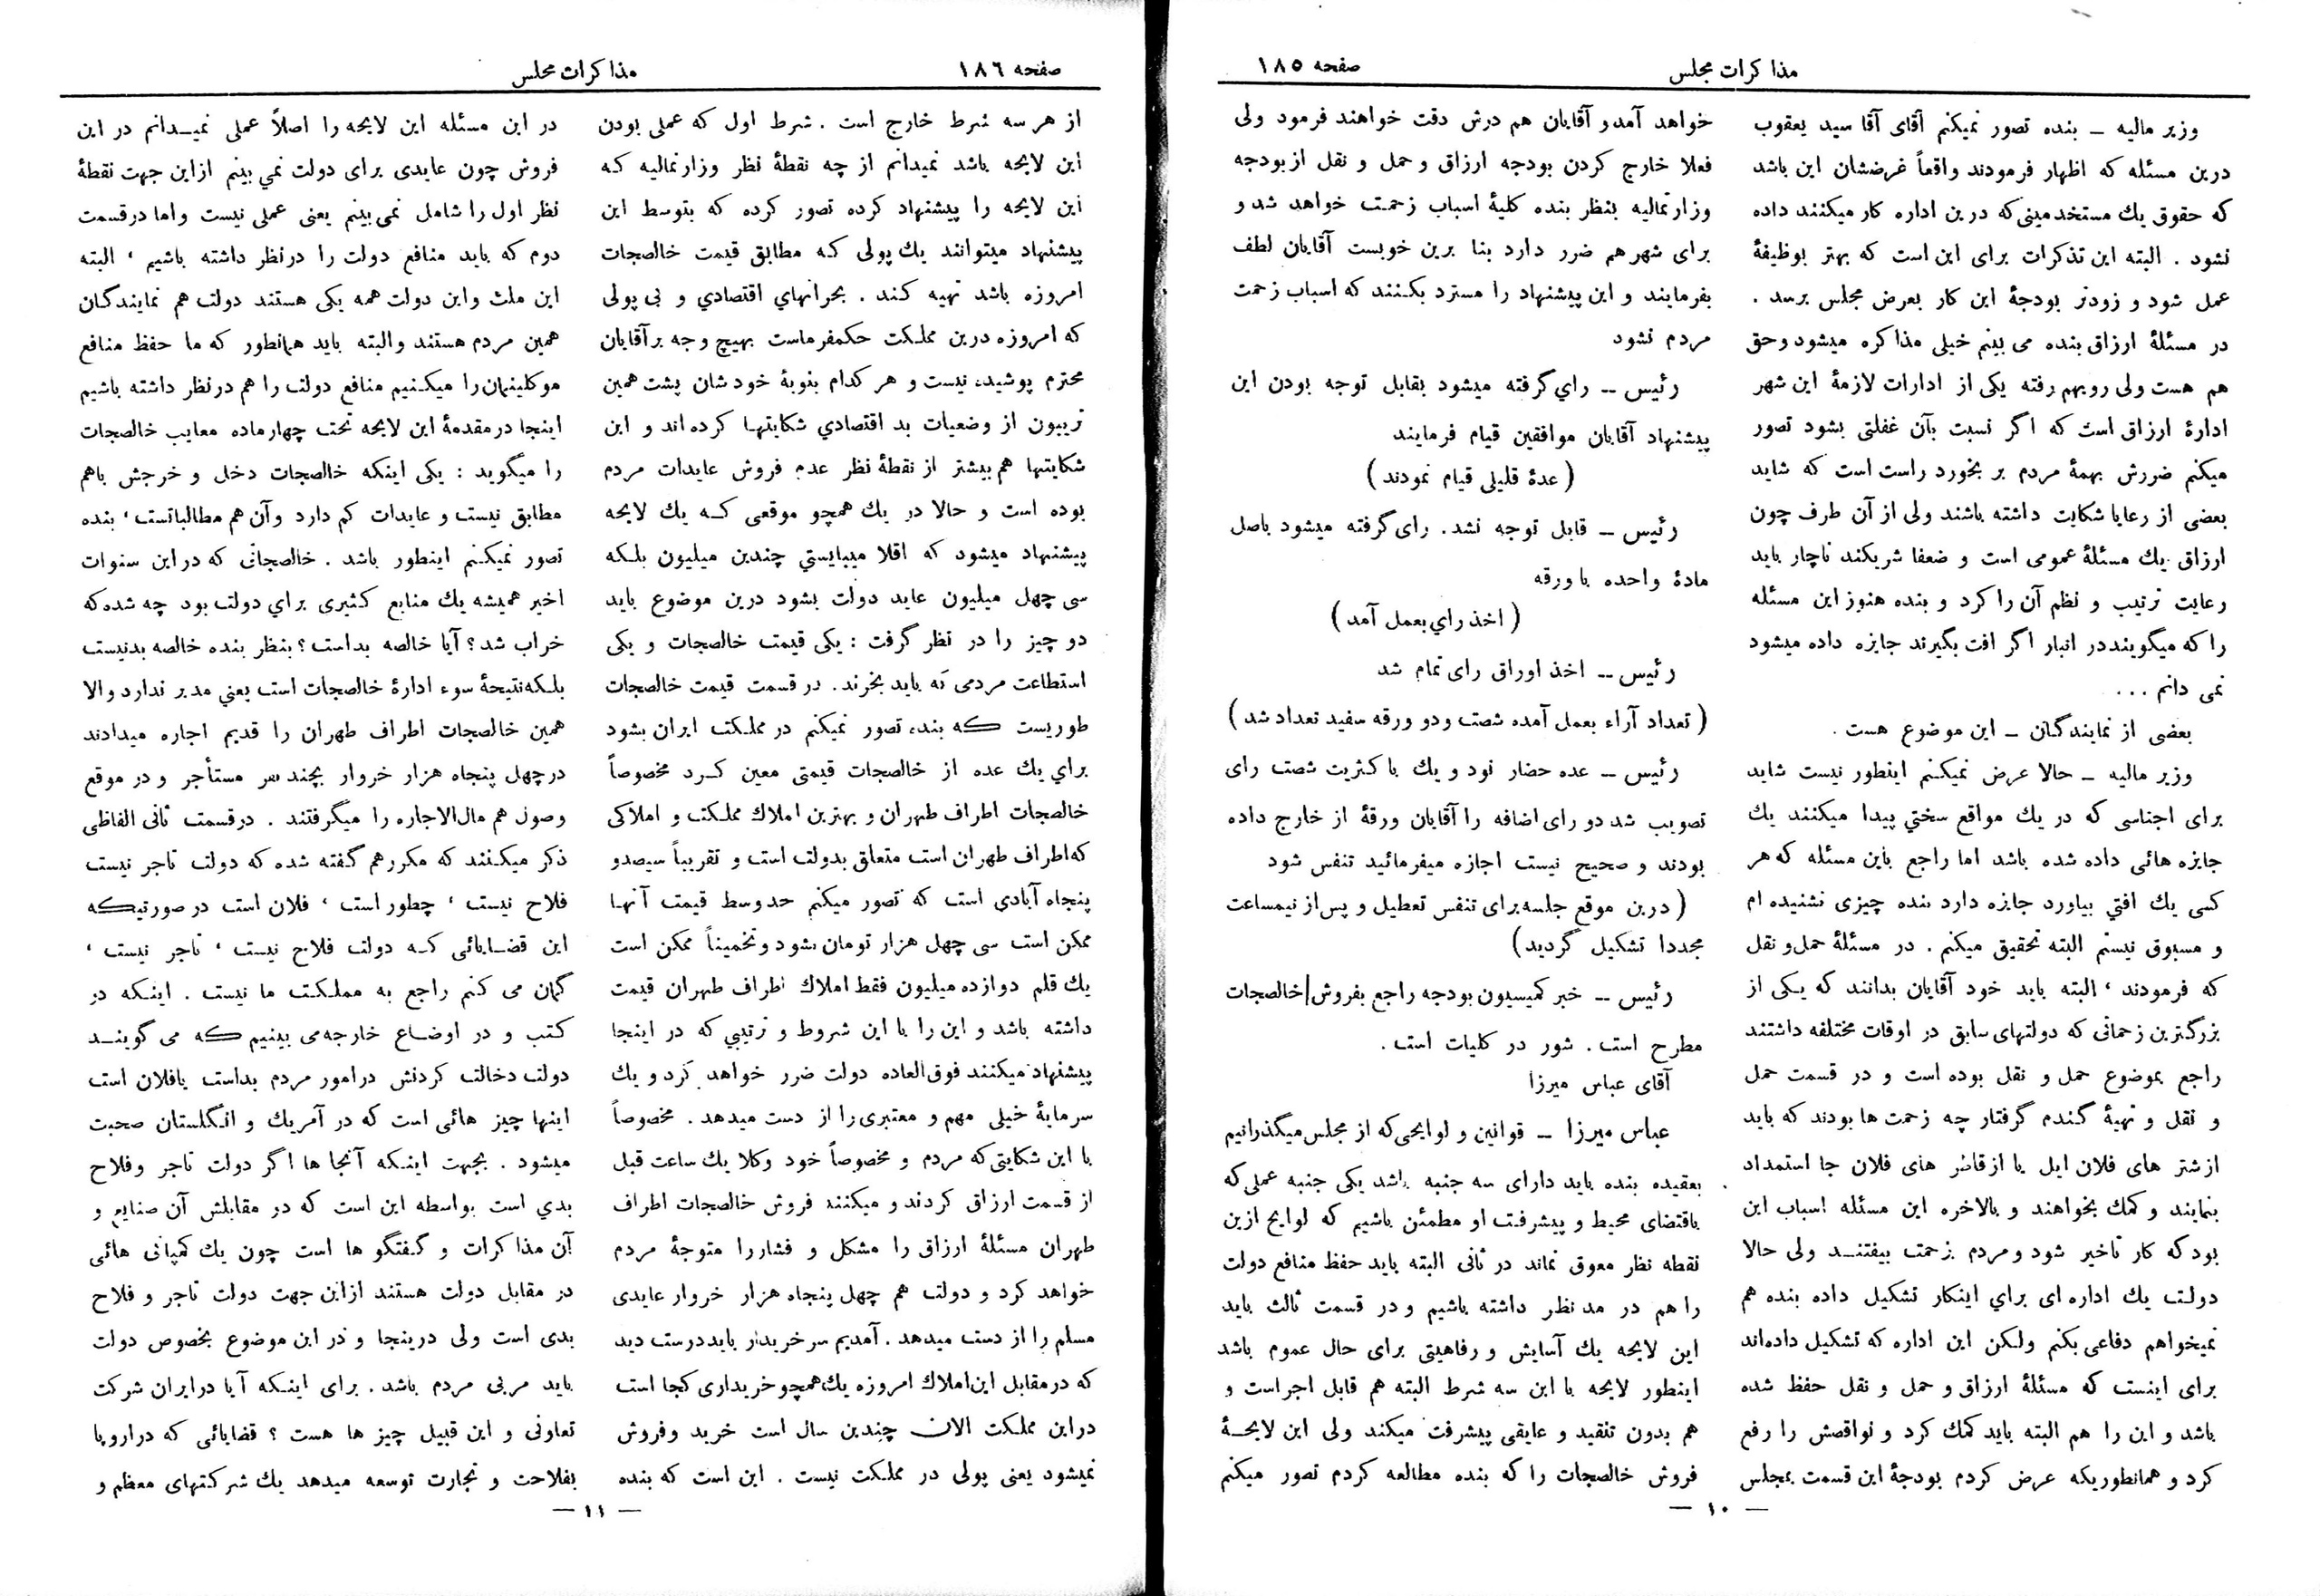 مذاکرات مجلس
صفحه ۱۸۵
وزیر مالیه ــ بنده تصور نمیکنم آقای آقا سید یعقوب
درین مسئله که اظهار فرمودند واقعاً غرضشان این باشد
که حقوق یك مستخدمینی‌که درین اداره کار میکنند داده
نشود . البته این تذکرات برای این است که بهتر بوظیفهٔ
عمل شود و زودتر بودجهٔ این کار بعرض مجلس برسد .
در مسئلهٔ ارزاق بنده می بینم خیلی مذاکره میشود وحق
هم هست ولی رویهم رفته یکی از ادارات لازمهٔ این شهر
ادارهٔ ارزاق است که اگر نسبت بآن غفلتی بشود تصور
میکنم ضررش بهمهٔ مردم بر بخورد راست است که شاید
بعضی از رعایا شکایت داشته باشند ولی از آن طرف چون
ارزاق یك مسئلهٔ عمومی است و ضعفا شریکند ناچار باید
رعایت ترتیب و نظم آن را کرد و بنده هنوز این مسئله
را که میگویند در انبار اگر افت بگیرند جایزه داده میشود
نمی دانم ...
بعضی از نمایندگان ــ این موضوع هست .
وزیر مالیه ــ حالا عرض نمیکنم اینطور نیست شاید
برای اجناسی که در یك مواقع سختي پیدا میکنند یك
جایزه هائی داده شده باشد اما راجع باین مسئله که هر
کسی یك افتي بیاورد جایزه دارد بنده چیزی نشنیده ام
و مسبوق نیستم البته تحقیق میکنم . در مسئلهٔ حمل و نقل
که فرمودند ، البته باید خود آقایان بدانند که یکی از
بزرگترین زحماتی که دولتهای سابق در اوقات مختلفه داشتند
راجع بموضوع حمل و نقل بوده است و در قسمت حمل
و نقل و تهیهٔ گندم گرفتار چه زحمت ها بودند که باید
از شتر های فلان ایل یا از قاطر های فلان جا استمداد
بنمایند و کمك بخواهند و بالاخره این مسئله اسباب این
بود که کار تاخیر شود ومردم بزحمت بیفتنـد ولی حالا
دولت یك اداره ای براي اینکار تشکیل داده بنده هم
نمیخواهم دفاعی بکنم ولکن این اداره که تشکیل داده‌اند
برای اینست که مسئلهٔ ارزاق و حمل و نقل حفظ شده
باشد و این را هم البته باید کمك کرد و نواقصش را رفع
کرد و همانطوریکه عرض کردم بودجهٔ این قسمت بمجلس
خواهد آمد و آقایان هم درش دقت خواهند فرمود ولی
فعلا خارج کردن بودجه ارزاق و حمل و نقل از بودجه
وزارتمالیه بنظر بنده کلیهٔ اسباب زحمت خواهد شد و
برای شهر هم ضرر دارد بنا برین خوبست آقایان لطف
بفرمایند و این پیشنهاد را مسترد بکنند که اسباب زحمت
مردم نشود
رئیس ــ راي گرفته میشود بقابل توجه بودن این
پیشنهاد آقایان موافقین قیام فرمایند
( عدهٔ قلیلی قیام نمودند )
رئیس ــ قابل توجه نشد. رای گرفته میشود باصل
مادهٔ واحده با ورقه
( اخذ راي بعمل آمد )
رئیس ــ اخذ اوراق رای تمام شد
( تعداد آراء بعمل آمده شصت ودو ورقه سفید تعداد شد )
رئیس ــ عده حضار نود و یك با کثریت شصت رای
تصویب شد دو رای اضافه را آقایان ورقهٔ از خارج داده
بودند و صحیح نیست اجازه میفرمائید تنفس شود
( درین موقع جلسه برای تنفس تعطیل و پس از نیمساعت
مجددا تشکیل گردید )
رئیس ــ خبر کمیسیون بودجه راجع بفروش خالصجات
مطرح است . شور در کلیات است .
آقای عباس میرزا
عباس میرزا ــ قوانین و لوایحی‌که از مجلس میگذرانیم
بعقیده بنده باید دارای سه جنبه باشد یکی جنبه عملی‌که
باقتضای محیط و پیشرفت او مطمئن باشیم که لوایح ازین
نقطه نظر معوق نماند در ثانی البته باید حفظ منافع دولت
را هم در مد نظر داشته باشیم و در قسمت ثالث باید
این لایحه یك آسایش و رفاهیتی برای حال عموم باشد
اینطور لایحه با این سه شرط البته هم قابل اجر است و
هم بدون تنقید و عایقی پیشرفت میکند ولی این لایحـهٔ
فروش خالصجات را که بنده مطالعه کردم تصور میکنم
— ۱۰ —
صفحه ۱۸٦
مذاکرات مجلس
از هر سه شرط خارج است . شرط اول که عملی بودن
این لایحه باشد نمیدانم از چه نقطهٔ نظر وزارتمالیه کـه
این لایحه را پیشنهاد کرده تصور کرده که بتوسط این
پیشنهاد میتوانند یك پولی کـه مطابق قیمت خالصجات
امروزه باشد تهیه کند . بحرانهاي اقتصادي و بی پولی
که امروزه درین مملکت حکمفرماست بهیچ وجه بر آقایان
محترم پوشیده نیست و هر کدام بنوبهٔ خودشان پشت همین
تریبون از وضعیات بد اقتصادي شکایتهـا کرده اند و این
شکایتها هم بیشتر از نقطهٔ نظر عدم فروش عایدات مردم
بوده است و حالا در یك همچو موقعی کـه یك لایحه
پیشنهاد میشود که اقلا میبایستي چندین میلیون بلکه
سی چهل میلیون عاید دولت بشود درین موضوع باید
دو چیز را در نظر گرفت : یکی قیمت خالصجات و یکی
استطاعت مردمی که باید بخرند. در قسمت قیمت خالصجات
طوریست که بنده تصور نمیکنم در مملکت ایران بشود
براي یك عده از خالصجات قیمتی معین کرد مخصوصاً
خالصجات اطراف طهران و بهترین املاك مملکت و املاکی
که اطراف طهران است متعلق بدولت است و تقریباً سیصدو
پنجاه آبادي است که تصور میکنم حد وسط قیمت آنهـا
ممکن است سی چهل هزار تومان بشود و تخمیناً ممکن است
یك قلم دوازده میلیون فقط املاك اطراف طهران قیمت
داشته باشد و این را با این شروط و ترتیبي که در اینجا
پیشنهاد میکنند فوق‌العاده دولت ضرر خواهد کرد و یك
سرمایهٔ خیلی مهم و معتبری را از دست میدهد . مخصوصاً
با این شکایتی‌که مردم و مخصوصاً خود وکلا یك ساعت قبل
از قسمت ارزاق کردند و میکنند فروش خالصجات اطراف
طهران مسئلهٔ ارزاق را مشکل و فشار را متوجهٔ مردم
خواهد کرد و دولت هم چهل پنجاه هزار خروار عایدی
مسلم را از دست میدهد . آمدیم سر خریدار باید درست دید
که درمقابل این املاك امروزه یك همچو خریداری کجا است
در این مملکت الان چندین سال است خرید وفروش
نمیشود یعنی پولی در مملکت نیست . این است که بنده
در این مسئله این لایحه را اصلاً عملی نمیـدانم در این
فروش چون عایدی برای دولت نمي بینم از این جهت نقطهٔ
نظر اول را شامل نمی بینم یعنی عملی نیست واما درقسمت
دوم که باید منافع دولت را درنظر داشته باشیم ، البته
این ملت واین دولت همه یکی هستند دولت هم نمایندگان
همین مردم هستند والبته باید همانطور که ما حفظ منافع
موکلینمان را میکنیم منافع دولت را هم در نظر داشته باشیم
اینجا در مقدمهٔ این لایحه تحت چهار ماده معایب خالصجات
را میگوید : یکی اینکه خالصجات دخل و خرجش باهم
مطابق نیست و عایدات کم دارد وآن هم مطالباتست ، بنده
تصور نمیکنم اینطور باشد . خالصجاتی که در این سنوات
اخیر همیشه یك منابع کثیری براي دولت بود چه شده که
خراب شد ؟ آیا خالصه بد است ؟ بنظر بنده خالصه بد نیست
بلکه نتیجهٔ سوء ادارهٔ خالصجات است یعني مدیر ندارد والا
همین خالصجات اطراف طهران را قدیم اجاره میدادند
در چهل پنجاه هزار خروار بچند نفر مستأجر و در موقع
وصول هم مال‌الاجاره را میگرفتند . درقسمت ثانی الفاظی
ذکر میکنند که مکرر هم گفته شده که دولت تاجر نیست
فلاح نیست ، چطور است ، فلان است در صورتیکه
این قضـایائی کـه دولت فلاح نیست ، تاجر نیست ،
گمان می کنم راجع به مملکت ما نیست . اینکه در
کتب و در اوضـاع خارجه می بینیم که می گوینـد
دولت دخالت کردنش درامور مردم بداست یا فلان است
اینها چیز هائی است که در آمریك و انگلستان صحبت
میشود . بجهت اینکه آنجا ها اگر دولت تاجر وفلاح
بدي است بواسطه این است که در مقابلش آن صنایع و
آن مذاکرات و گفتگو ها است چون یك کمپانی هائی
در مقابل دولت هستند از این جهت دولت تاجر و فلاح
بدی است ولی درینجا و در این موضوع بخصوص دولت
باید مربی مردم باشد . برای اینکه آیا در ایران شرکت
تعاونی و این قبیل چیز ها هست ؟ قضایائی که در اروپا
بفلاحت و تجارت توسعه میدهد یك شرکتهای معظم و
— ۱۱ —